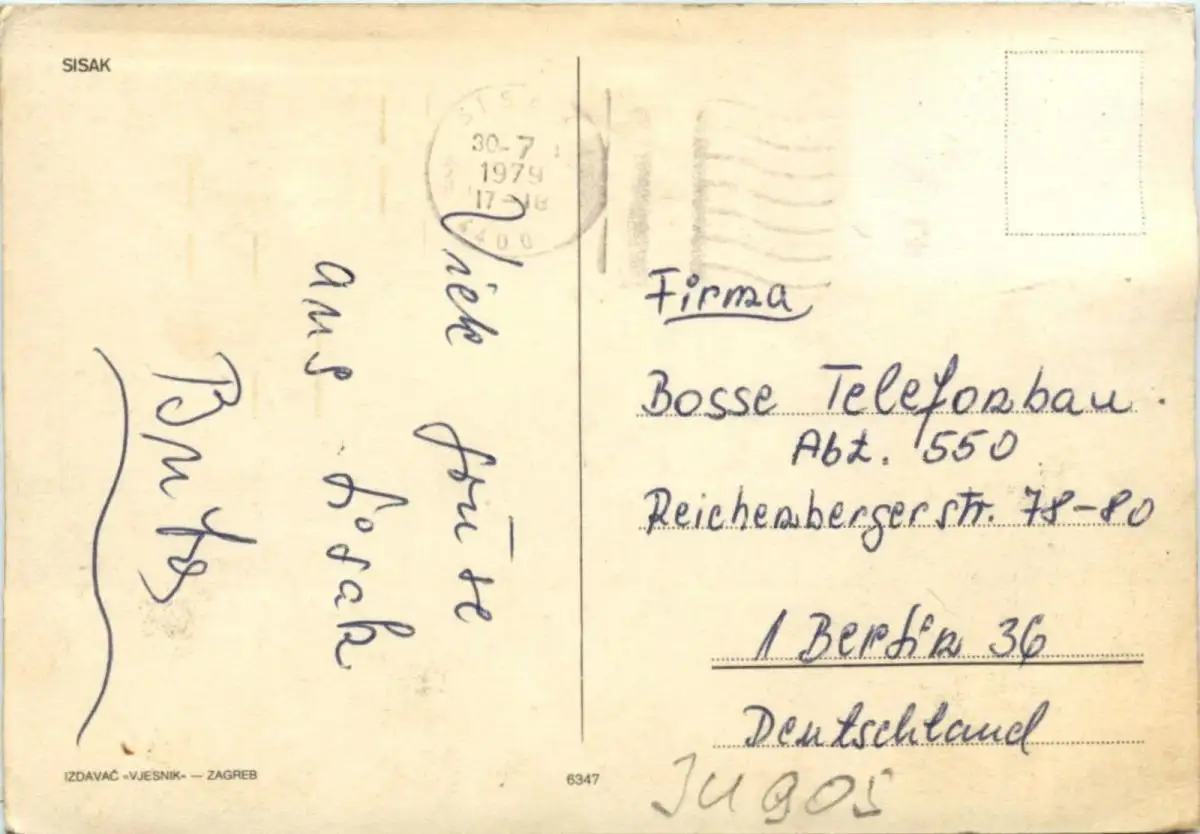 SISAK
SISAK
30-7
1979
17-18
44000
Viele
Grüse
aus Sisak
Firma
Bosse Telefonbau.
Abt. 550
Reichenbergerstr. 78-80
1 Berlin 36
Deutschland
IZDAVAČ «VJESNIK» — ZAGREB
6347
JUGOS